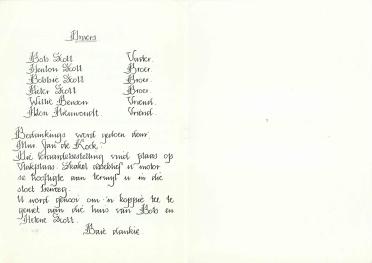 Draers
Bob Scott Vader.
Henton Scott Broer.
Bobbie Scott Broer.
Pieter Scott Broer.
Willie Benson Vriend.
Vriend.
Bedankings word gedoen deur
Mnr. Jan de Kock.
Die teraardebestelling vind plaas op
Vlakplaas. Skakel asseblief u motor
se hoofligte aan terwyl u in die
stoet beweeg.
U word genooi om 'n koppie tee te
geniet aan die huis van Bob en
Helene Scott.
Baie dankie.